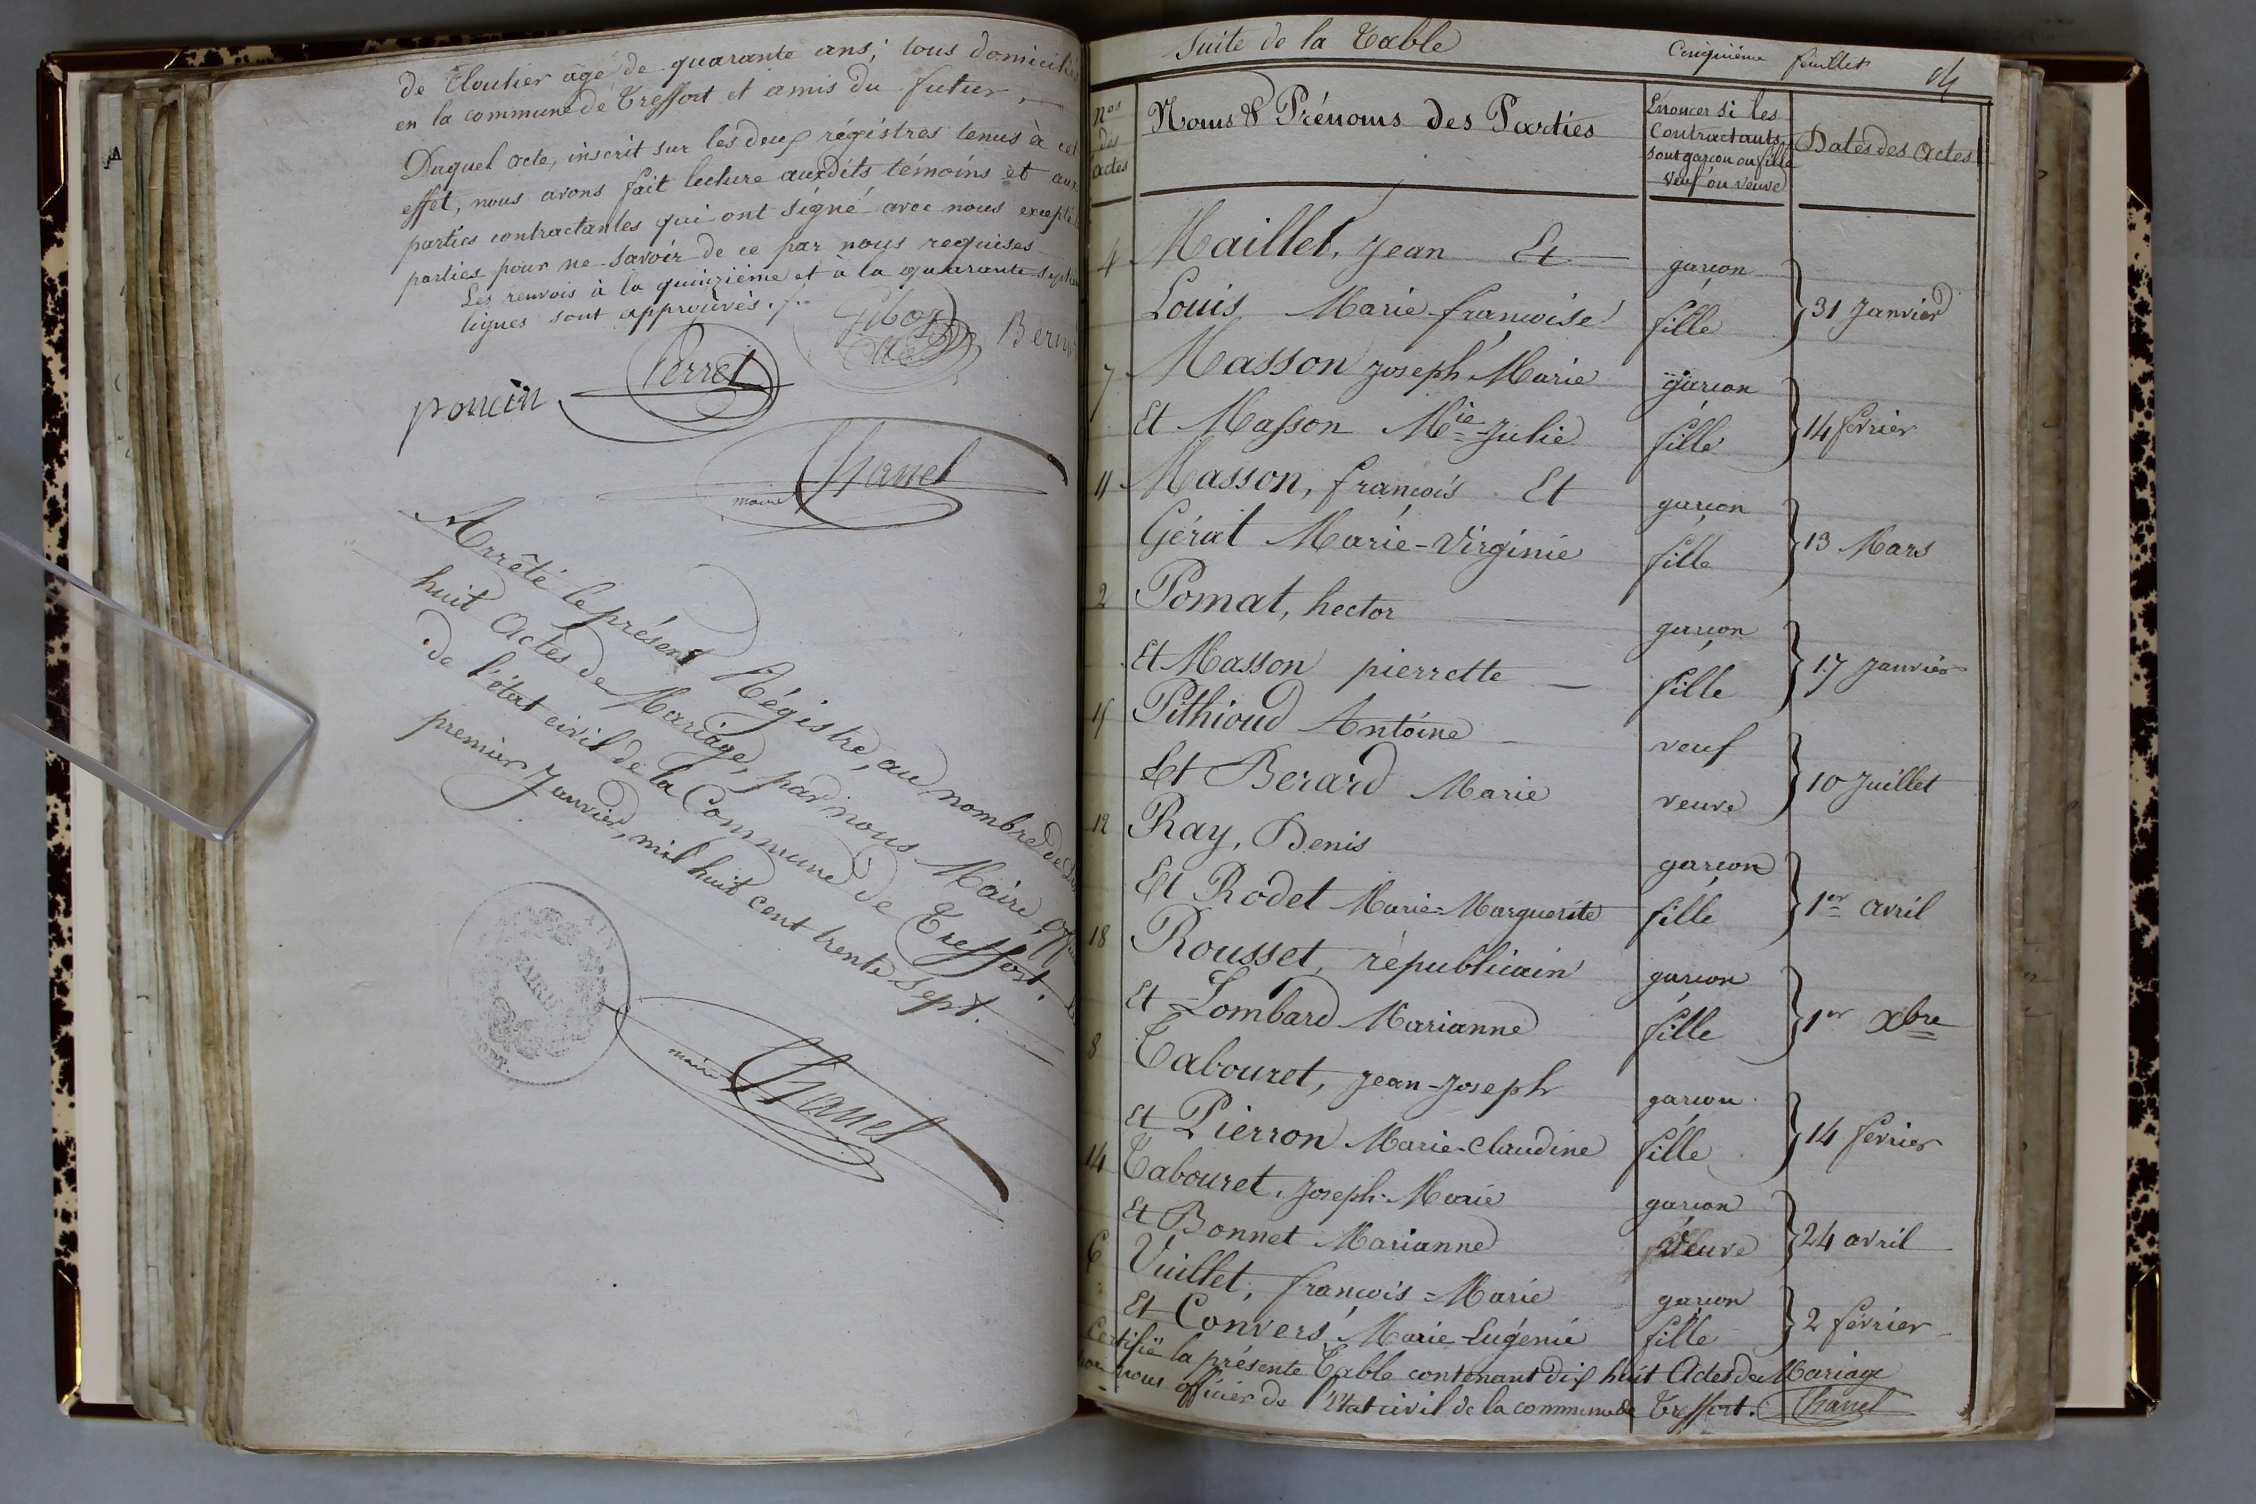 de Cloutier âgé de quarante ans; tous domiciliés
en la commune de Treffort et amis du futur,
Duquel acte, inscrit sur les deux régistres tenus à cet
effet, nous avons fait lecture auxdits témoins et aux
parties contractantes qui ont signé avec nous excepté
parties pour ne savoir de ce par nous requises
Les renvois à la quinzième et à la quarante sept
lignes sont approuvés ./.
Perret
poncin
maire Chanel
Arrêté le présent Régistre, au nombre de
huit Actes de Mariage, par nous Maire,
de l'état civil de la Commune de Treffort.
premier Janvier, mil huit cent trente sept.
MAIRIE
maire Chanel
Suite de la Table
Cinquième feuillet
Nos des actes
Noms & Prénoms des Parties
Enoncer si les Contractants sont garçon ou fille veuf ou veuve
Dates des Actes
4 Maillet, Jean Et garcon
Louis Marie françoise fille } 31 Janvier
7 Masson joseph Marie garcon
Et Masson Mie Julie fille } 14 fevrier
11 Masson, françois Et garcon
Gérat Marie-Virginie fille } 13 Mars
2 Pomat, hector garcon
Et Masson pierrette fille } 17 Janvier
15 Pithioud Antoine veuf
Et Berard Marie veuve } 10 Juillet
12 Ray, Denis garcon
Et Rodet Marie=Marguerite fille } 1er avril
18 Rousset, républicain garcon
et Lombard Marianne fille } 1er Xbre
8 Tabouret, Jean-Joseph garcon
et Pierron Marie-Claudine fille } 14 fevrier
14 Tabouret, Joseph-Marie garcon
Et Bonnet Marianne veuve } 24 avril
6 Vuillet, françois=Marie garcon
Et Convers Marie-Eugénie fille } 2 fevrier
Certifié la présente Table contenant dix huit Actes de Mariage
par nous officier de l'Etat civil de la commune de Treffort. Chanel